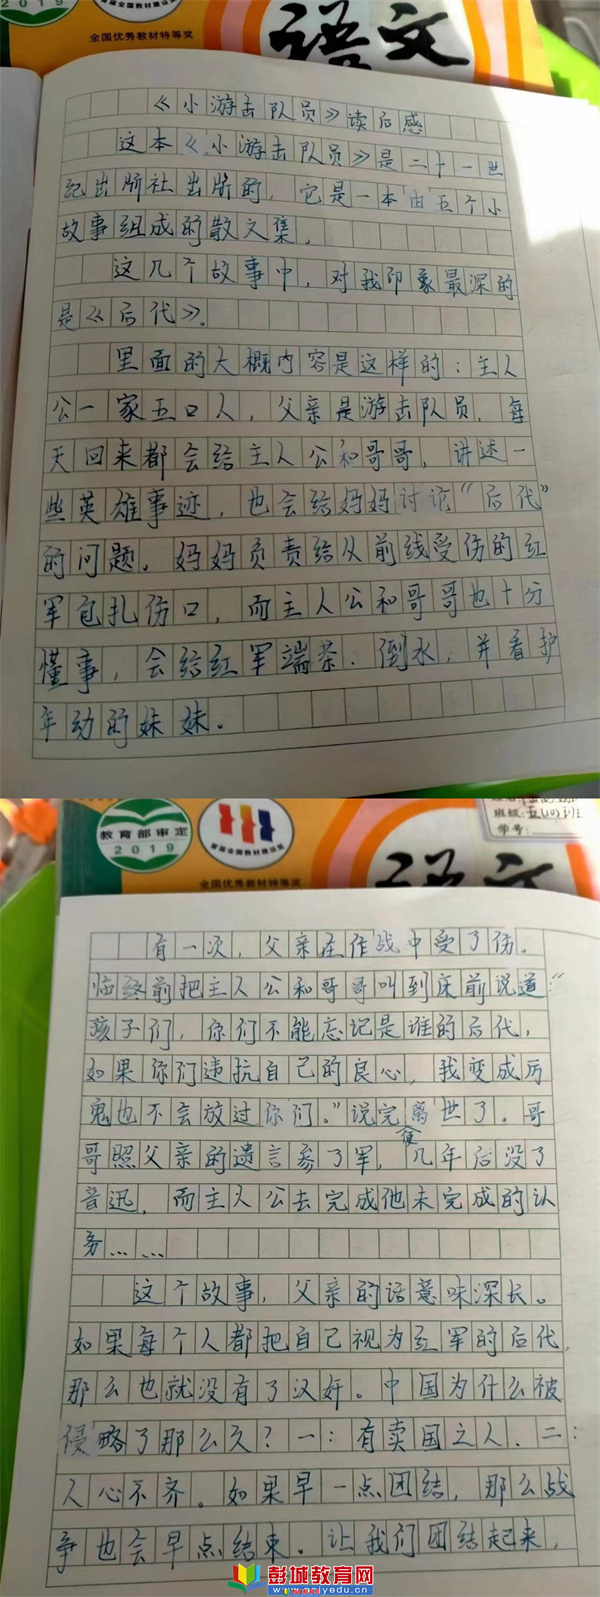 2019
全国优秀教材特等奖
语文
《小游击队员》读后感
这本《小游击队员》是二十一世
纪出版社出版的，它是一本由五个小
故事组成的散文集，
这几个故事中，对我印象最深的
是《后代》。
里面的大概内容是这样的：主人
公一家五口人，父亲是游击队员，每
天回来都会给主人公和哥哥，讲述一
些英雄事迹，也会给妈妈讨论“后代”
的问题。妈妈负责给从前线受伤的红
军包扎伤口，而主人公和哥哥也十分
懂事，会给红军端茶、倒水，并看护
年幼的妹妹。
教育部审定
2019
首届全国教材建设奖
全国优秀教材特等奖
班级：五(4)班
学号：
语文
有一次，父亲在作战中受了伤。
临终前把主人公和哥哥叫到床前说道：“
孩子们，你们不能忘记是谁的后代，
如果你们违抗自己的良心，我变成厉
鬼也不会放过你们。”说完离世了。哥
哥照父亲的遗言参了军，便几年后没了
音迅，而主人公去完成他未完成的认
务……
这个故事，父亲的话意味深长。
如果每个人都把自己视为红军的后代，
那么也就没有了汉奸。中国为什么被
侵略了那么久？一：有卖国之人、二：
人心不齐。如果早一点团结，那么战
争也会早点结束。让我们团结起来，
彭城教育网